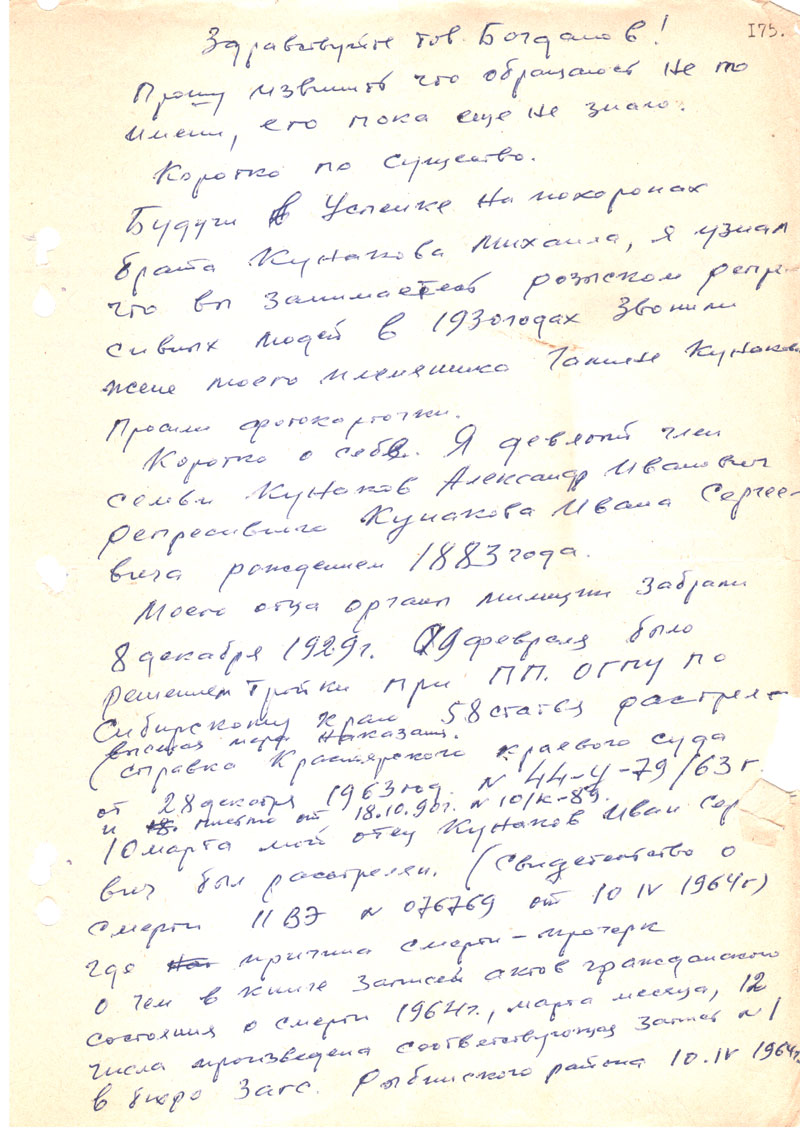 175.
Здравствуйте тов. Богданов!
Прошу извинить что обращаюсь не по
имени, его пока еще не знаю.
Коротко по существо.
Будучи в Успенке на похоронах
брата Кунакова Михаила, я узнал
что вы занимаетесь розыском репре-
сивных людей в 1930годах Звонили
жене моего племяника Галине Кунаков
просили фотокарточки.
Коротко о себе. Я девятый член
семьи Кунаков Александр Иванович
репресивного Кунакова Ивана Сергее-
вича рождением 1883 года.
Моего отца органы милиции забрали
8 декабря 1929г. 9 февраля было
решением тройки при ПП. ОГПУ по
Сибирскому краю 58 статья растрел-
высшая мера наказан.
(справка Красноярского краевого суда
от 28 декабря 1963год. N 44-у-79/63г.
и письмо от 18.10.90г. N 10/к-89.
10 марта мой отец Кунаков Иван Сер
вич был расстрелен. (Свидетельство о
смерти II ВЭ N 076769 от 10 IV 1964г)
где причина смерти – прочерк
о чем в книге записей актов гражданского
состояния о смерти 1964г., марта месяца, 12
числа произведена соответствующая запись N 1
в бюро Загс. Рыбинского района 10.IV 1964г.